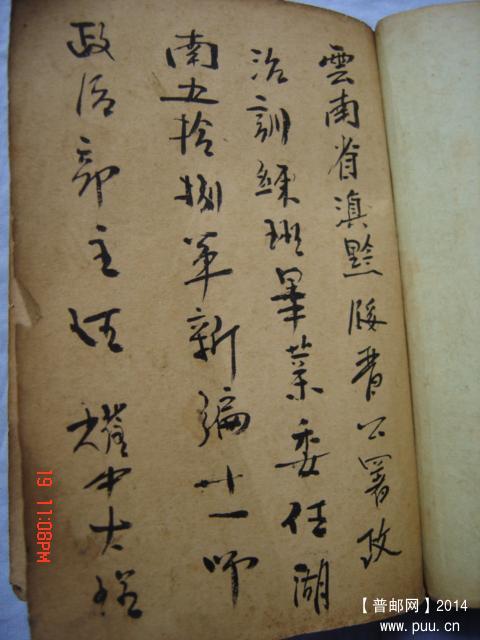 雲南省滇黔公署政
治訓練班畢業委任湖
南五拾捌軍新編十一师
政治部主任 耀中大
19 11:08PM
【普邮网】2014
www.puu.cn